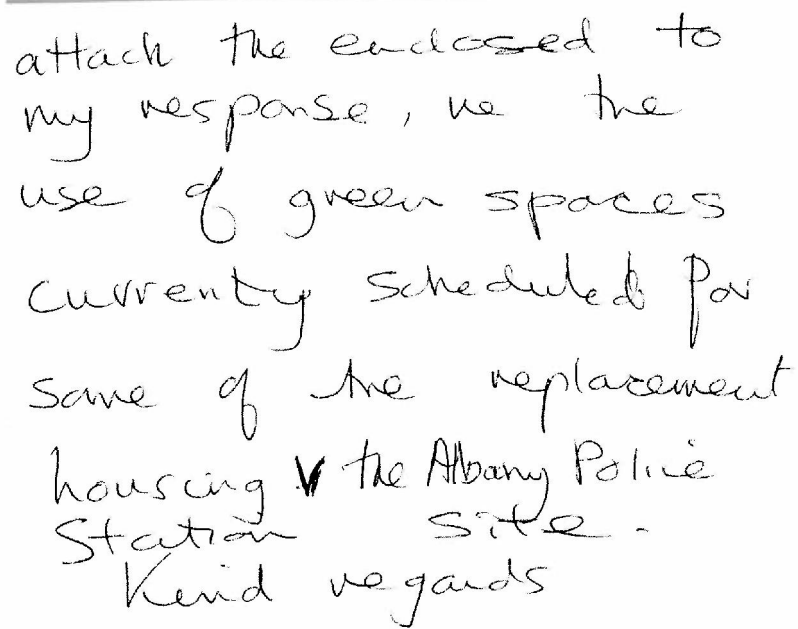 attach the enclosed to
my response, re the
use of green spaces
currently scheduled for
some of the replacement
housing v the Albany Police
Station site.
Kind regards